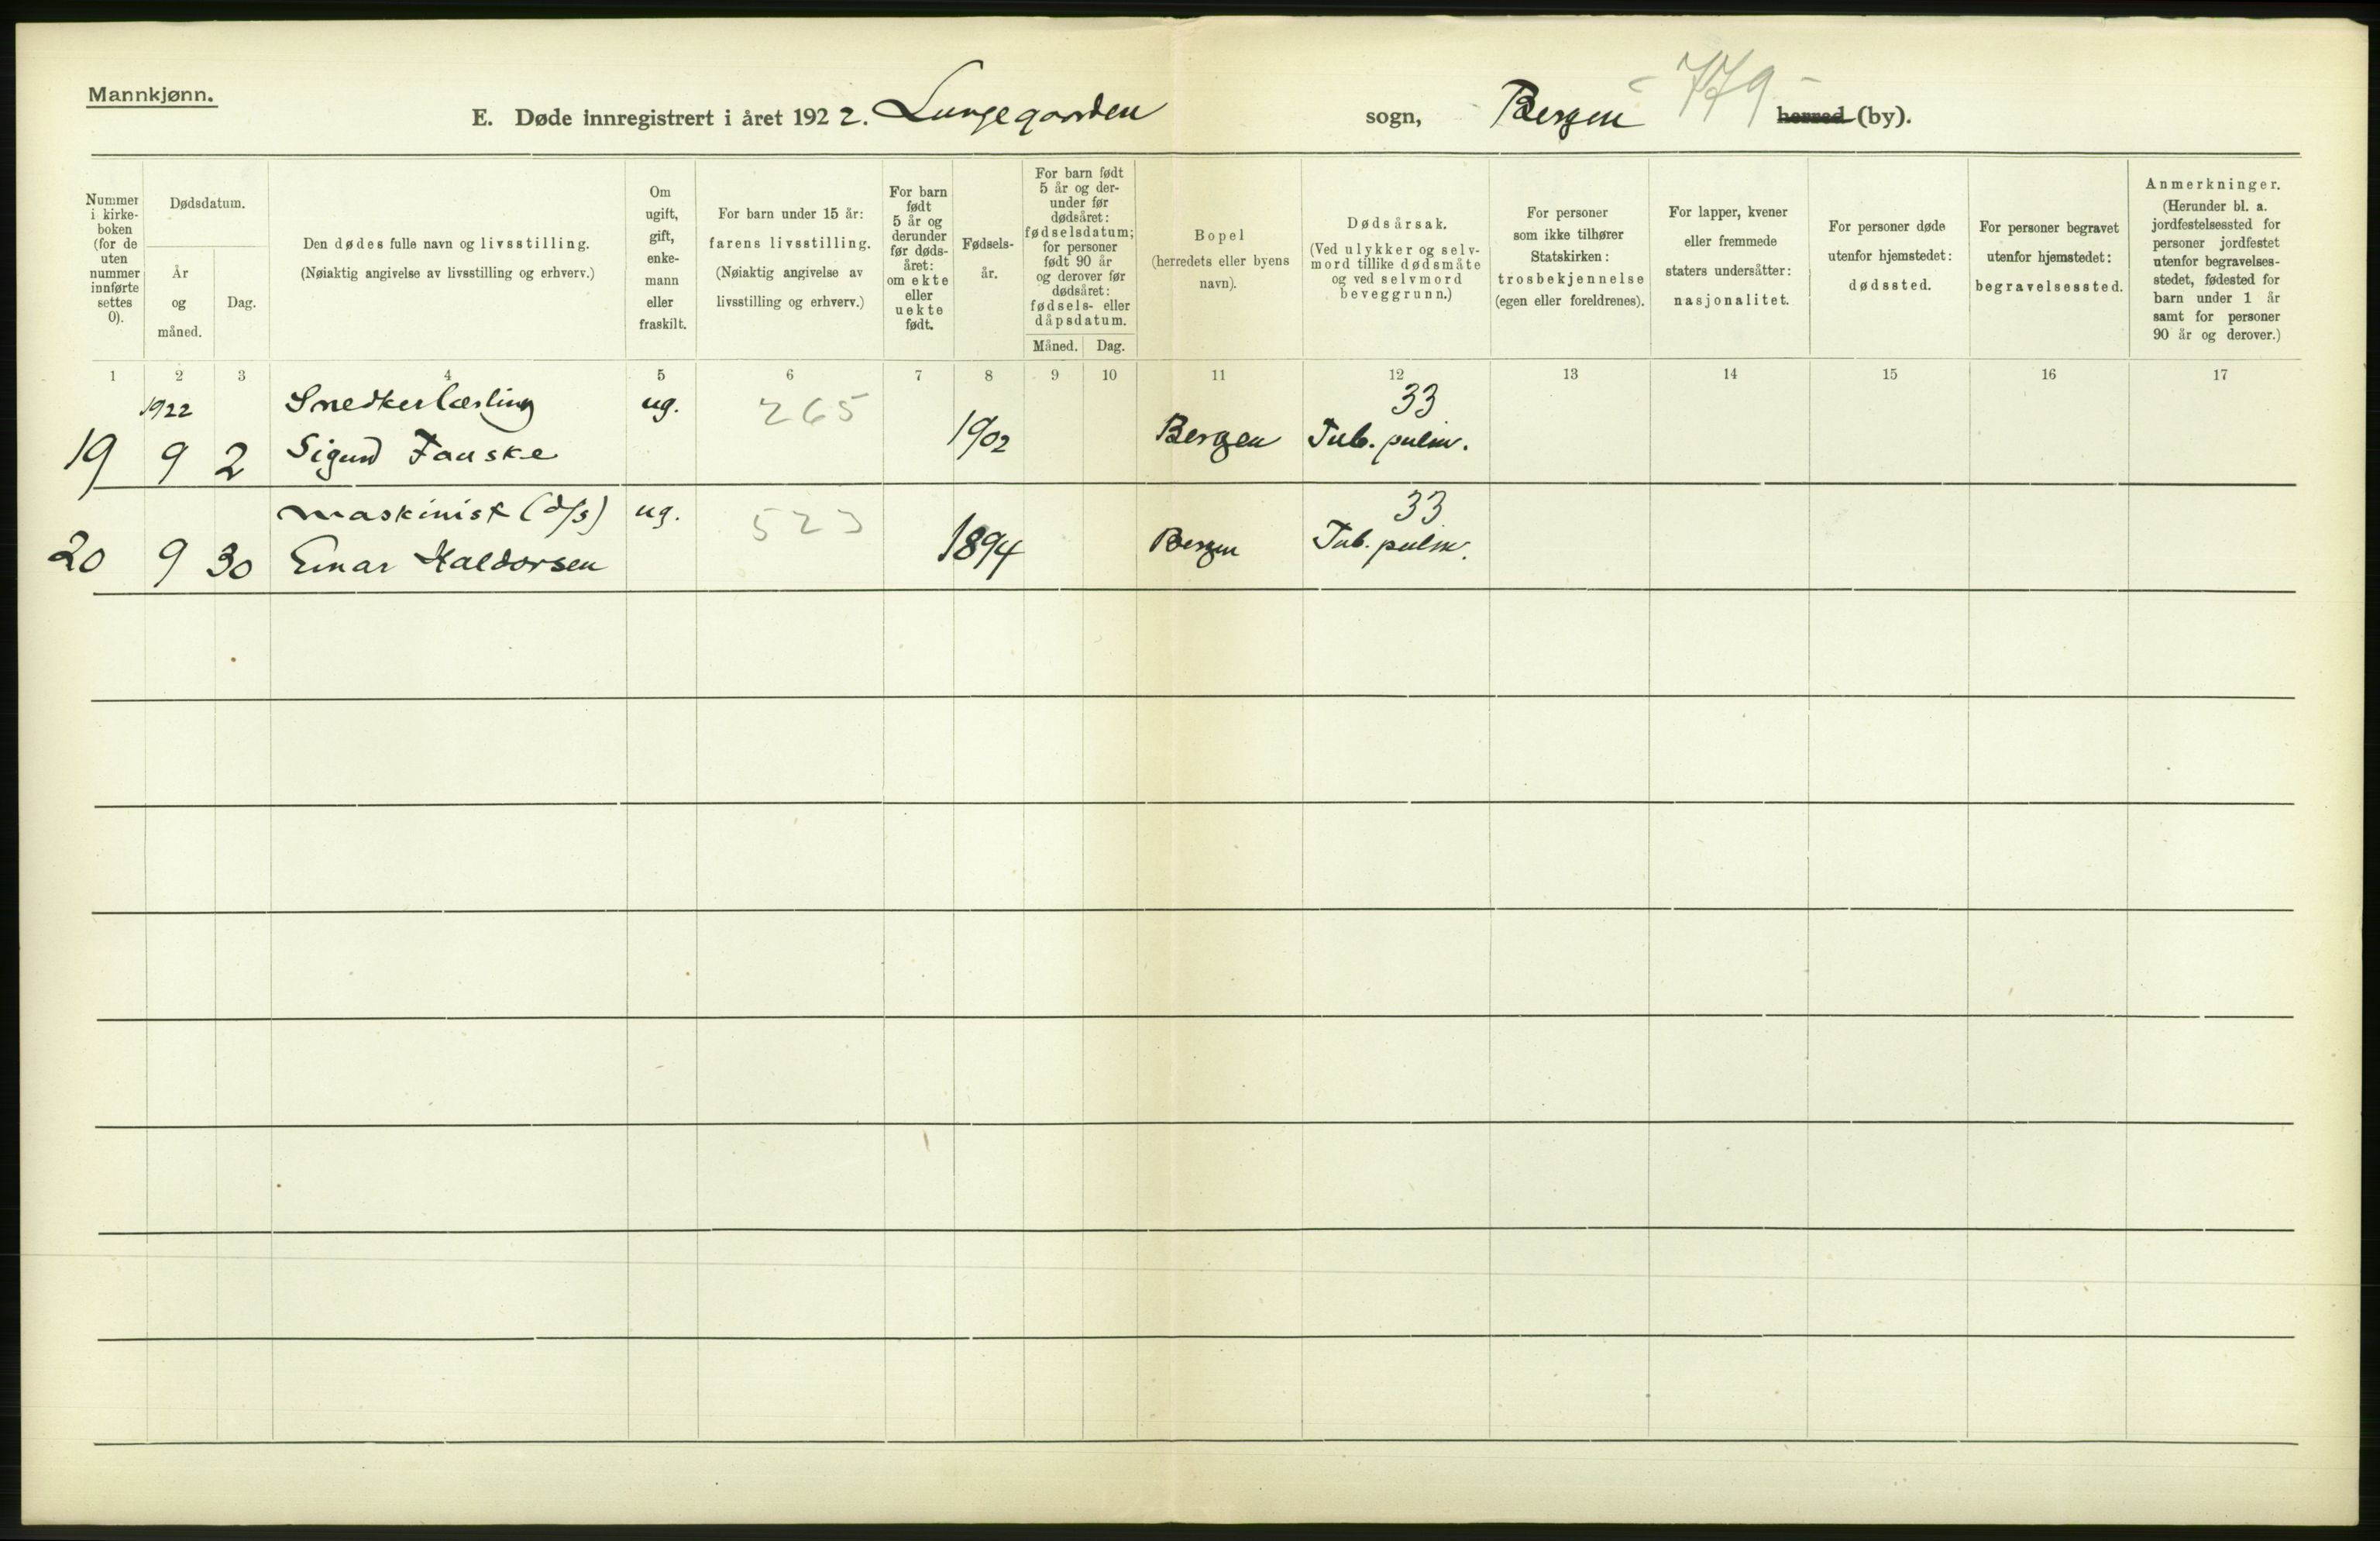 Mannkjønn.
E. Døde innregistrert i året 1922. Lungegaarden sogn, Bergen - 779 - herred (by).
Nummer i kirke-
boken
(for de
uten
nummer
innførte
settes
0).
Dødsdatum.
År
og
måned.
Dag.
Den dødes fulle navn og livsstilling.
(Nøiaktig angivelse av livsstilling og erhverv.)
Om
ugift,
gift,
enke-
mann
eller
fraskilt.
For barn under 15 år:
farens livsstilling.
(Nøiaktig angivelse av
livsstilling og erhverv.)
For barn
født
5 år og
derunder
før døds-
året:
om ekte
eller
uekte
født.
Fødsels-
år.
For barn født
5 år og der-
under før
dødsåret:
fødselsdatum;
for personer
født 90 år
og derover før
dødsåret:
fødsels- eller
dåpsdatum.
Måned. Dag.
Bopel
(herredets eller byens
navn).
Dødsårsak.
(Ved ulykker og selv-
mord tillike dødsmåte
og ved selvmord
beveggrunn.)
For personer
som ikke tilhører
Statskirken:
trosbekjennelse
(egen eller foreldrenes).
For lapper, kvener
eller fremmede
staters undersåtter:
nasjonalitet.
For personer døde
utenfor hjemstedet:
dødssted.
For personer begravet
utenfor hjemstedet:
begravelsessted.
Anmerkninger.
(Herunder bl. a.
jordfestelsessted for
personer jordfestet
utenfor begravelses-
stedet, fødested for
barn under 1 år
samt for personer
90 år og derover.)
1 2 3 4 5 6 7 8 9 10 11 12 13 14 15 16 17
1922 Snedkerlærling ug. 265 33
19 9 2 Sigurd Fauske 1902 Bergen Tub. pulm.
maskinist (d/s) ug. 523 33
20 9 30 Einar Haldorsen 1894 Bergen Tub. pulm.